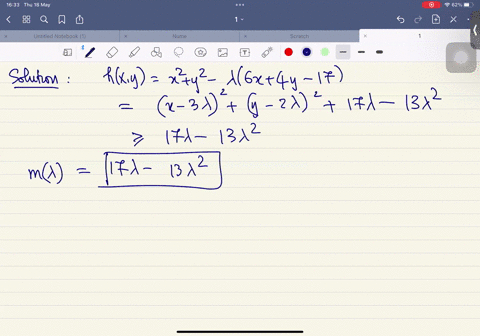 16:33 Thu 18 May
62%
1
Untitled Notebook (1)
Scratch
1
Solution : h(x,y) = x²+y² - λ(6x+4y-17)
= (x-3λ)² + (y-2λ)² + 17λ - 13λ²
≥ 17λ - 13λ²
m(λ) = 17λ - 13λ²